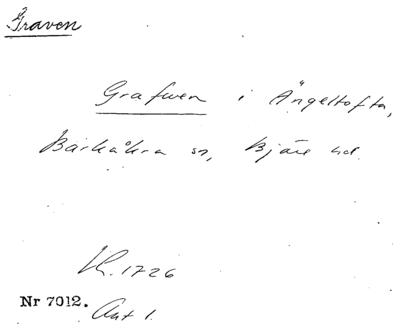 Graven
Grafwen i Ängeltofta,
Barkåkra sn, Bjäre hd.
Kh. 1726
Nr 7012.
Ant 1.